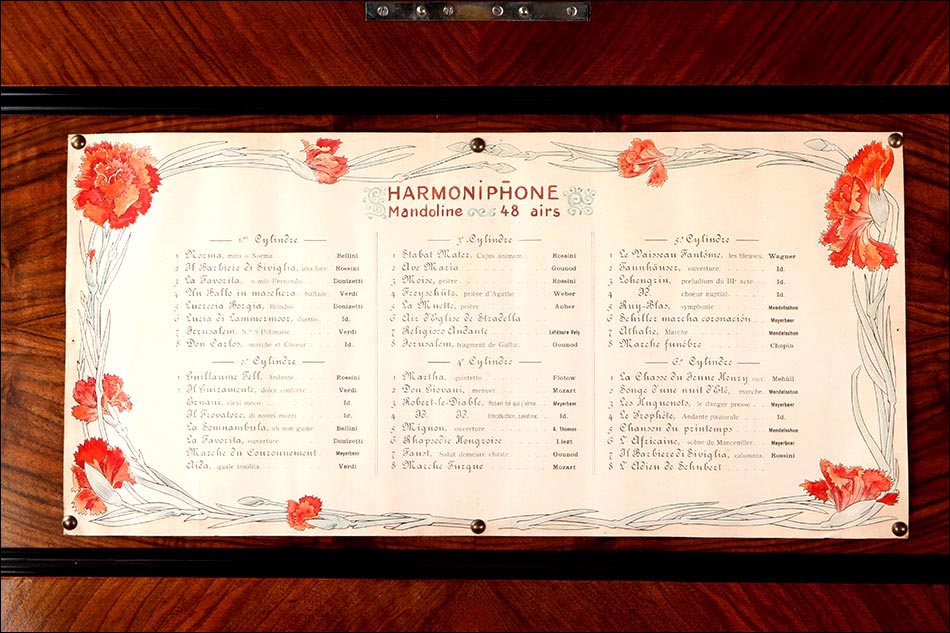 HARMONIPHONE
Mandoline 48 airs
1er Cylindre
1 Norma, mira o Norma Bellini
2 Il Barbiere di Siviglia, una voce Rossini
3 La Favorita, o mio Fernando Donizetti
4 Un Ballo in maschera, ballade Verdi
5 Lucrecia Borgia, Brindisi Donizetti
6 Lucia di Lammermoor, duetto Id.
7 Jerusalem, Verdi
8 Don Carlos, marche et Chœur Id.
2e Cylindre
1 Guillaume Tell, Andante Rossini
1 Il Giuramento, dolce conforto Verdi
Ernani, vieni meco Id.
Il Trovatore, di nostri monti Id.
La Somnambula, ah non giunge Bellini
La Favorita, ouverture Donizetti
Marche du Couronnement Meyerbeer
Aïda, quale insolita Verdi
3e Cylindre
1 Stabat Mater, Cujus animam Rossini
2 Ave Maria Gounod
3 Moïse, prière Rossini
4 Freyschütz, prière d'Agathe Weber
5 La Muette, prière Auber
6 Air d'Eglise de Stradella
7 Religioso Andante Lefébure Wely
8 Jerusalem, fragment de Gallia Gounod
4e Cylindre
1 Martha, quintetto Flotow
2 Don Giovani, menuet Mozart
3 Robert-le-Diable, Robert toi qui j'aime Meyerbeer
4 Id. Id. Introduction, cavatine Id.
5 Mignon, ouverture A. Thomas
6 Rhapsodie Hongroise Liszt
7 Faust, Salut demeure chaste Gounod
8 Marche Turque Mozart
5e Cylindre
1 Le Vaisseau Fantôme, les fileuses Wagner
2 Tannhäuser, ouverture Id.
3 Lohengrin, preludium du IIIe acte Id.
4 Id. chœur nuptial Id.
5 Ruy-Blas, symphonie Mendelsshon
6 Schiller marcha coronación Meyerbeer
7 Athalie, Marche Mendelsshon
8 Marche funèbre Chopin
6e Cylindre
1 La Chasse du Jeune Henry ouv. Mehüll
2 Songe d'une nuit d'Eté, marche Mendelsshon
3 Les Huguenots, le danger presse Meyerbeer
4 Le Prophète, Andante pastorale Id.
5 Chanson du printemps Mendelsshon
6 L'Africaine, scène du Mancenillier Meyerbeer
7 Il Barbiere di Siviglia, calomnia Rossini
8 L'Adieu de Schubert